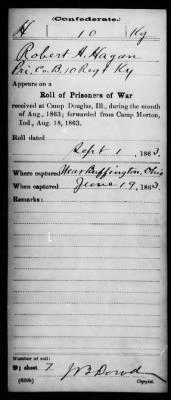 (Confederate.)
H 10 Ky
Robert A. Hagan
Pri, Co. B, 10 Regt Ky
Appears on a
Roll of Prisoners of War
received at Camp Douglas, Ill., during the month
of Aug., 1863; forwarded from Camp Morton,
Ind., Aug. 18, 1863.
Roll dated
Sept 1, 1863.
Where captured Near Buffington, Ohio
When captured June 19, 1863.
Remarks:
Number of roll:
9; sheet 7
J B Dowd
Copyist.